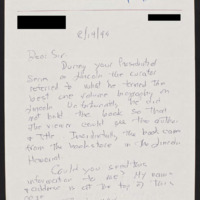 8/14/94
Dear Sir
During your Presidents
Series on Lincoln the curator
referred to what he termed the
best one volume biography on
Lincoln. Unfortunately he did
not hold the book so that
the viewer could see the author
& title. Incidentally the book came
from the bookstore in the Lincoln
Memorial.
Could you send this
information to me? My name
& address is at the top of this